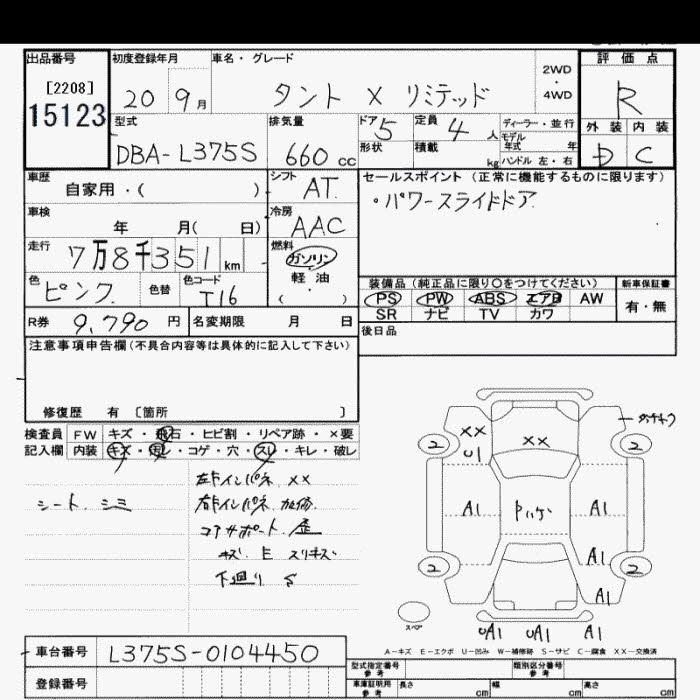 出品番号 初度登録年月 車名・グレード 2WD・4WD 評価点
[2208]
15123
20 9月 タント X リミテッド R
型式 排気量 ドア 5 定員 4人 ディーラー・並行 外装 内装
モデル年式 年
DBA-L375S 660 cc 形状 積載 kg ハンドル 左・右 D C
車歴 シフト セールスポイント (正常に機能するものに限ります)
自家用・( ) AT
・パワースライドドア
車検 冷房
年 月( 日) AAC
走行 燃料
7万8千351 km ガソリン
軽油
( )
色 色替 色コード 装備品 (純正品に限り○をつけてください) 新車保証書
ピンク T16 PS PW ABS エアB AW 有・無
SR ナビ TV カワ
R券 9,790 円 名変期限 月 日
後日品
注意事項申告欄(不具合内容等は具体的に記入して下さい)
修復歴 有 〔箇所 〕
検査員 FW キズ・飛石・ヒビ割・リペア跡・×要
記入欄 内装 キズ・汚レ・コゲ・穴・スレ・キレ・破レ
シート シミ
左Fインパネ XX
右Fインパネ 加修
コアサポート 歪
キズ E スリキズ
下廻り S
2 XX XX 2
U1
A1 Pハゲ A1
A1
2 2
A1
スペア
UA1 UA1 A1
A-キズ E-エクボ U-凹み W-補修跡 S-サビ C-腐食 XX-交換済
車台番号 L375S-0104450
登録番号
型式指定番号 参考 類別区分番号 参考
車庫証明用 参考 長さ cm 幅 cm 高さ cm